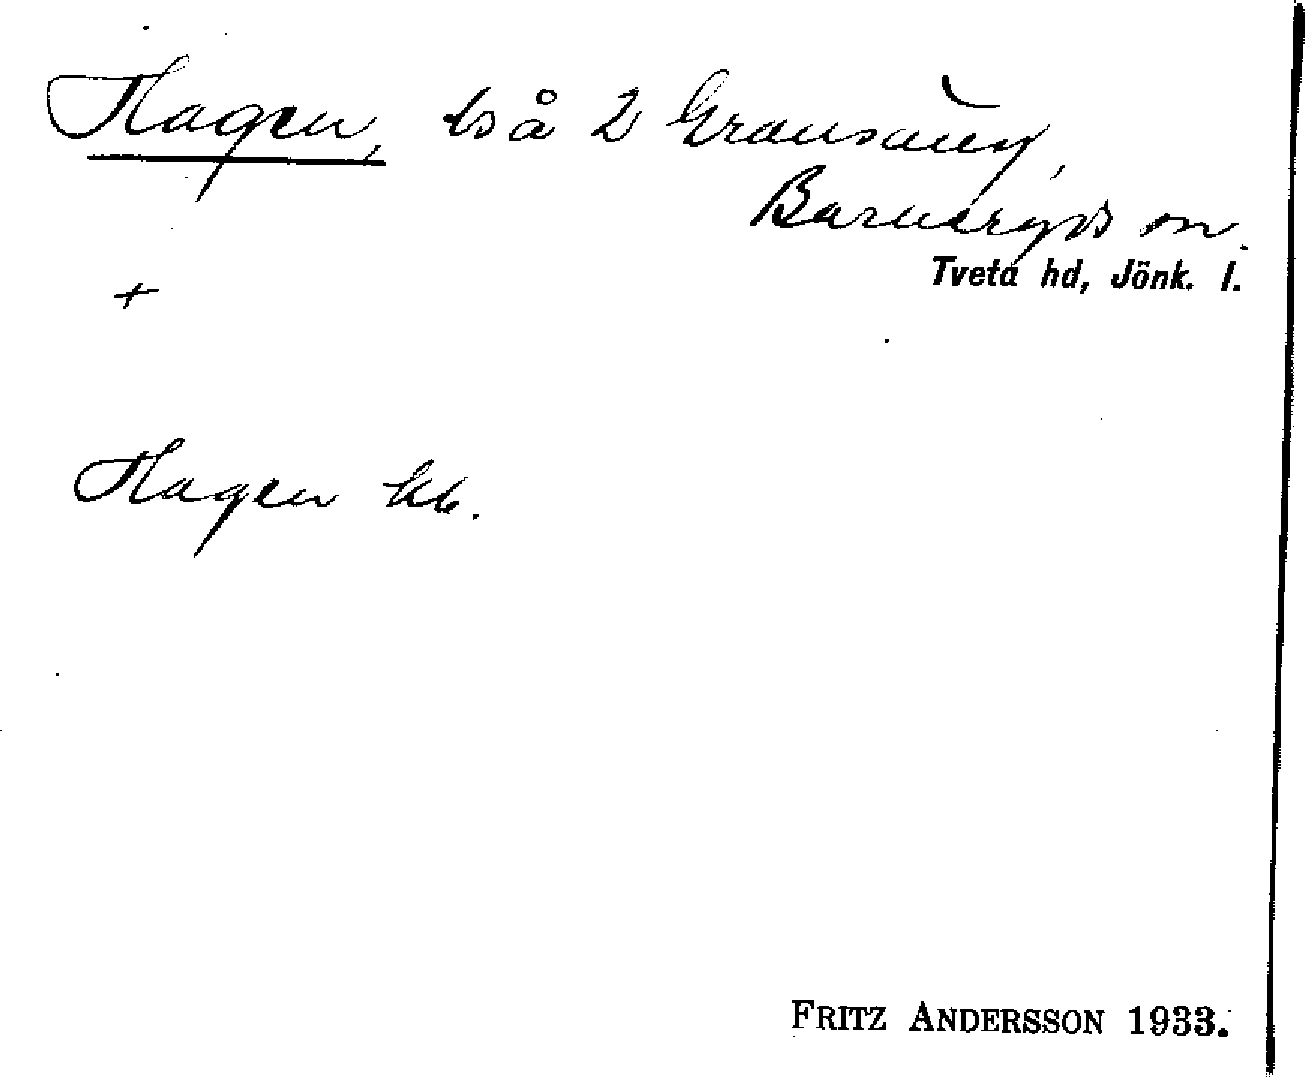 Hagen, bs å 2 Gransäng,
Barnaryds sn.
Tveta hd, Jönk. l.
+
Hagen kb.
FRITZ ANDERSSON 1933.